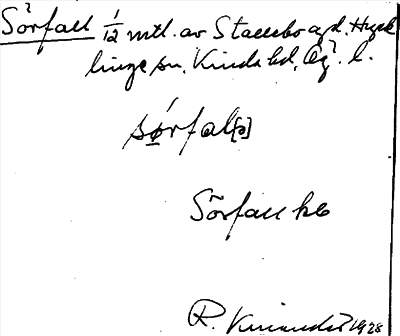 Sörfall 1/12 mtl. av Stensbo ägd. Hyck
linge sn, Kinda hd, Ög. l.
sørfal[ə]
Sörfall kb
R. Kinander 1928